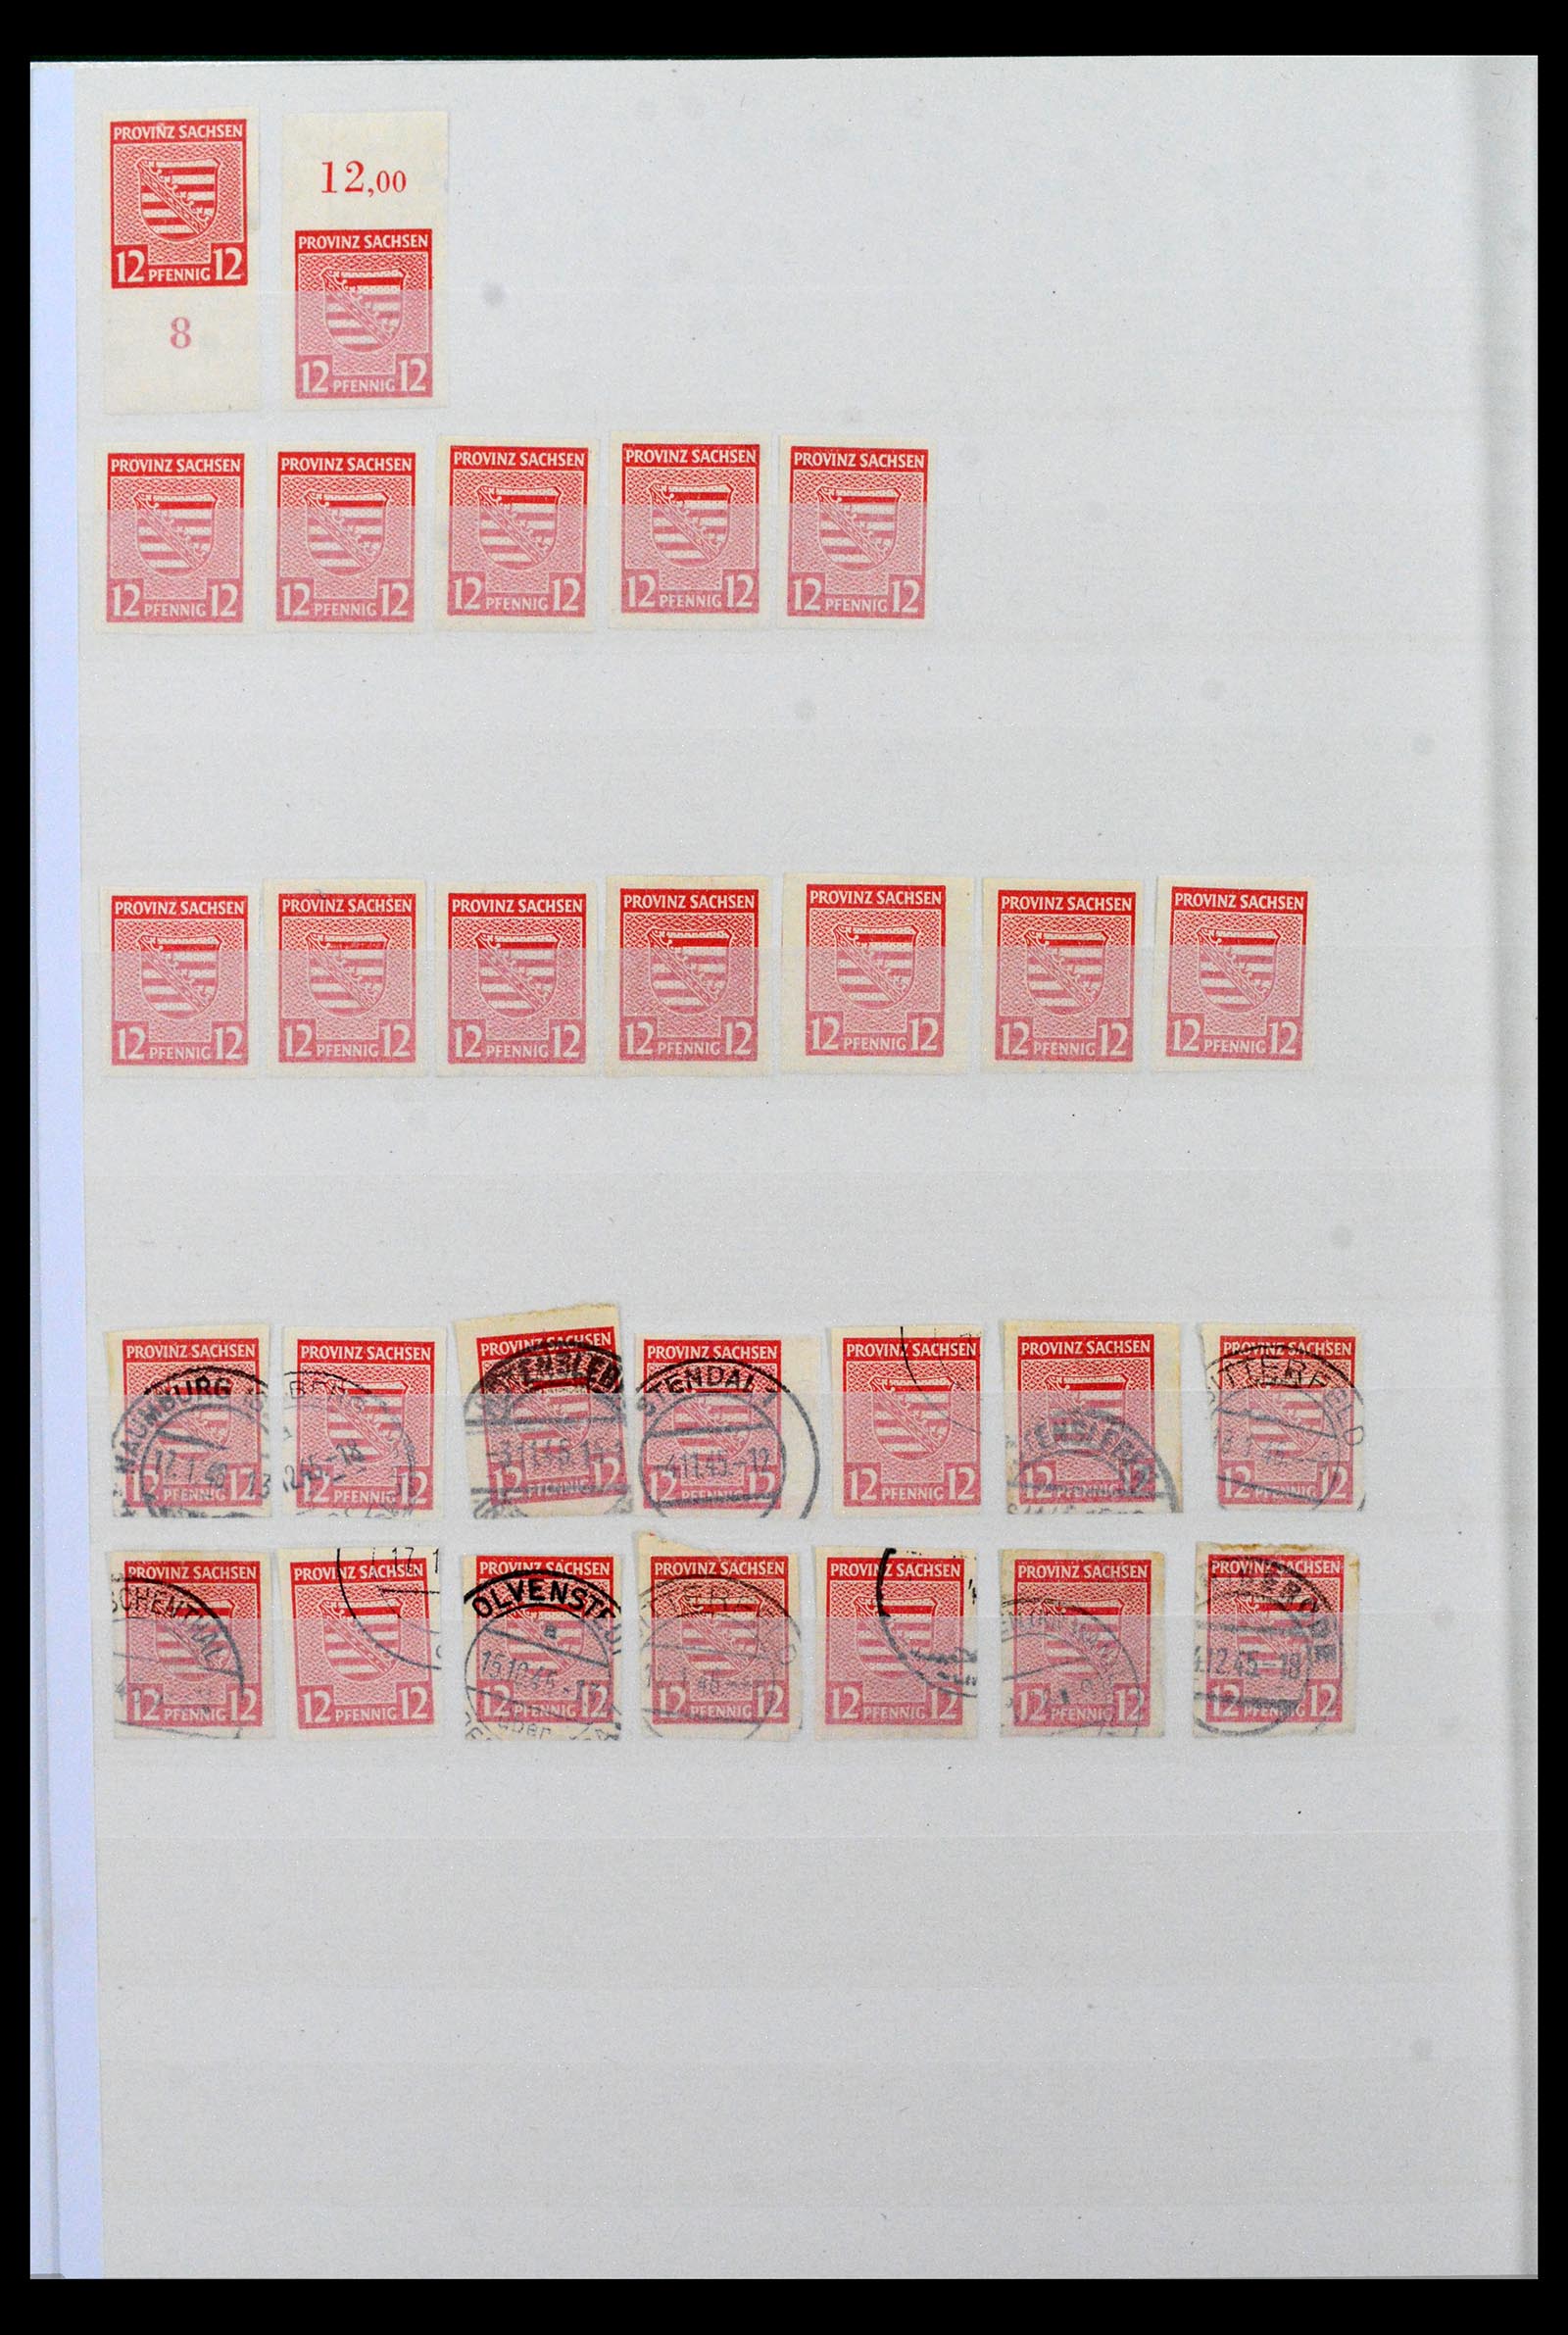 PROVINZ SACHSEN
12 PFENNIG 12
8
12,00
PROVINZ SACHSEN
12 PFENNIG 12
PROVINZ SACHSEN PROVINZ SACHSEN PROVINZ SACHSEN PROVINZ SACHSEN PROVINZ SACHSEN
12 PFENNIG 12 12 PFENNIG 12 12 PFENNIG 12 12 PFENNIG 12 12 PFENNIG 12
PROVINZ SACHSEN PROVINZ SACHSEN PROVINZ SACHSEN PROVINZ SACHSEN PROVINZ SACHSEN PROVINZ SACHSEN PROVINZ SACHSEN
12 PFENNIG 12 12 PFENNIG 12 12 PFENNIG 12 12 PFENNIG 12 12 PFENNIG 12 12 PFENNIG 12 12 PFENNIG 12
PROVINZ SACHSEN PROVINZ SACHSEN PROVINZ SACHSEN PROVINZ SACHSEN PROVINZ SACHSEN PROVINZ SACHSEN PROVINZ SACHSEN
NAUMBURG STENDAL 1 BITTERFELD
17.1.46 4.11.45.-12
12 PFENNIG 12 12 PFENNIG 12 12 PFENNIG 12 12 PFENNIG 12 12 PFENNIG 12 12 PFENNIG 12 12 PFENNIG 12
PROVINZ SACHSEN PROVINZ SACHSEN PROVINZ SACHSEN PROVINZ SACHSEN PROVINZ SACHSEN PROVINZ SACHSEN PROVINZ SACHSEN
SCHENTHAL 17.1 OLVENSTEDT
15.10.45 4.12.45-18
12 PFENNIG 12 12 PFENNIG 12 12 PFENNIG 12 12 PFENNIG 12 12 PFENNIG 12 12 PFENNIG 12 12 PFENNIG 12